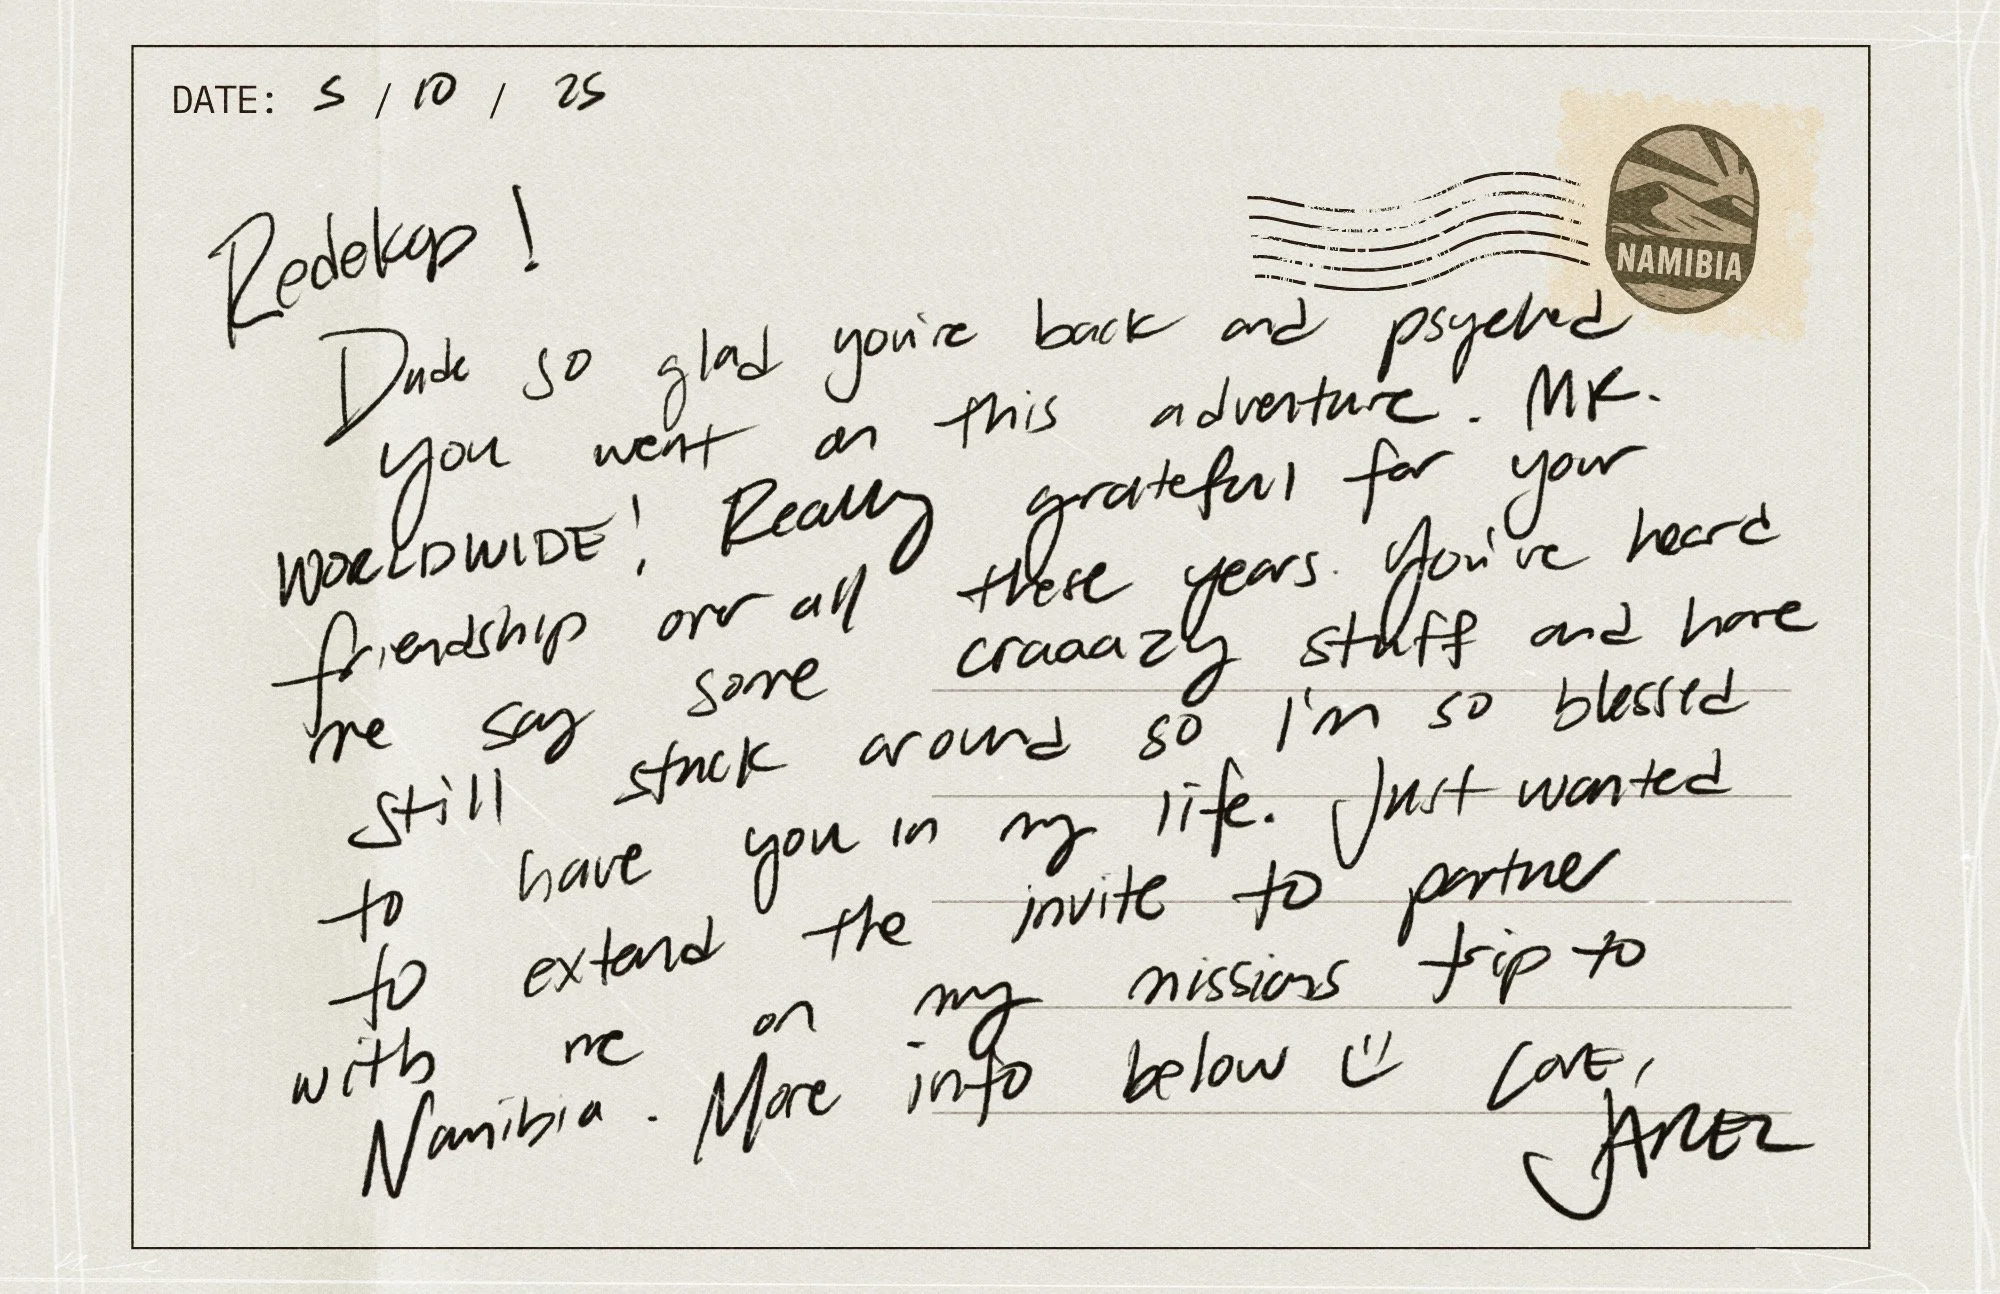 DATE: 5 / 10 / 25
NAMIBIA
Redekop!
Dude so glad you're back and psyched
you went on this adventure. MR.
WORLDWIDE! Really grateful for your
friendship over all these years. You've heard
me say some craaazy stuff and have
still stuck around so I'm so blessed
to have you in my life. Just wanted
to extend the invite to partner
with me on my missions trip to
Namibia. More info below Love,
JAREZ